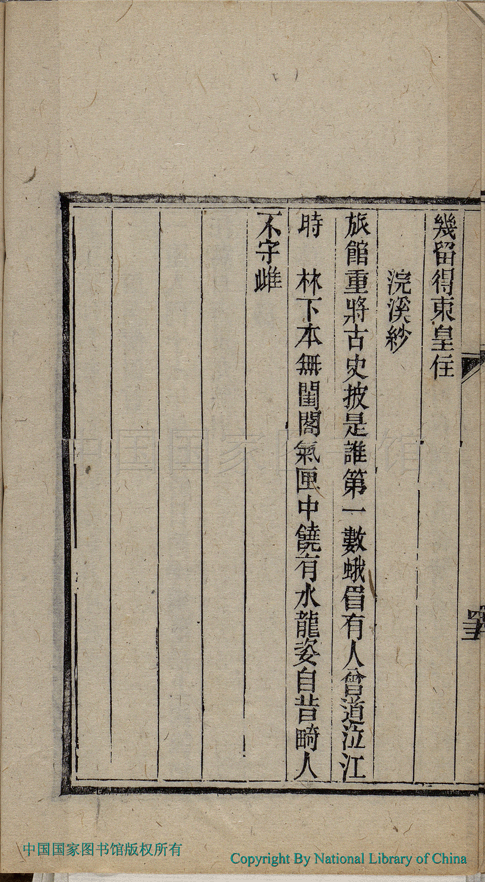 幾留得東皇住
浣溪紗
旅館重將古史披是誰第一數蛾眉有人曾道泣江
時　林下本無閨閣氣匣中饒有水龍姿自昔畸人
不守雌
中国国家图书馆版权所有
Copyright By National Library of China